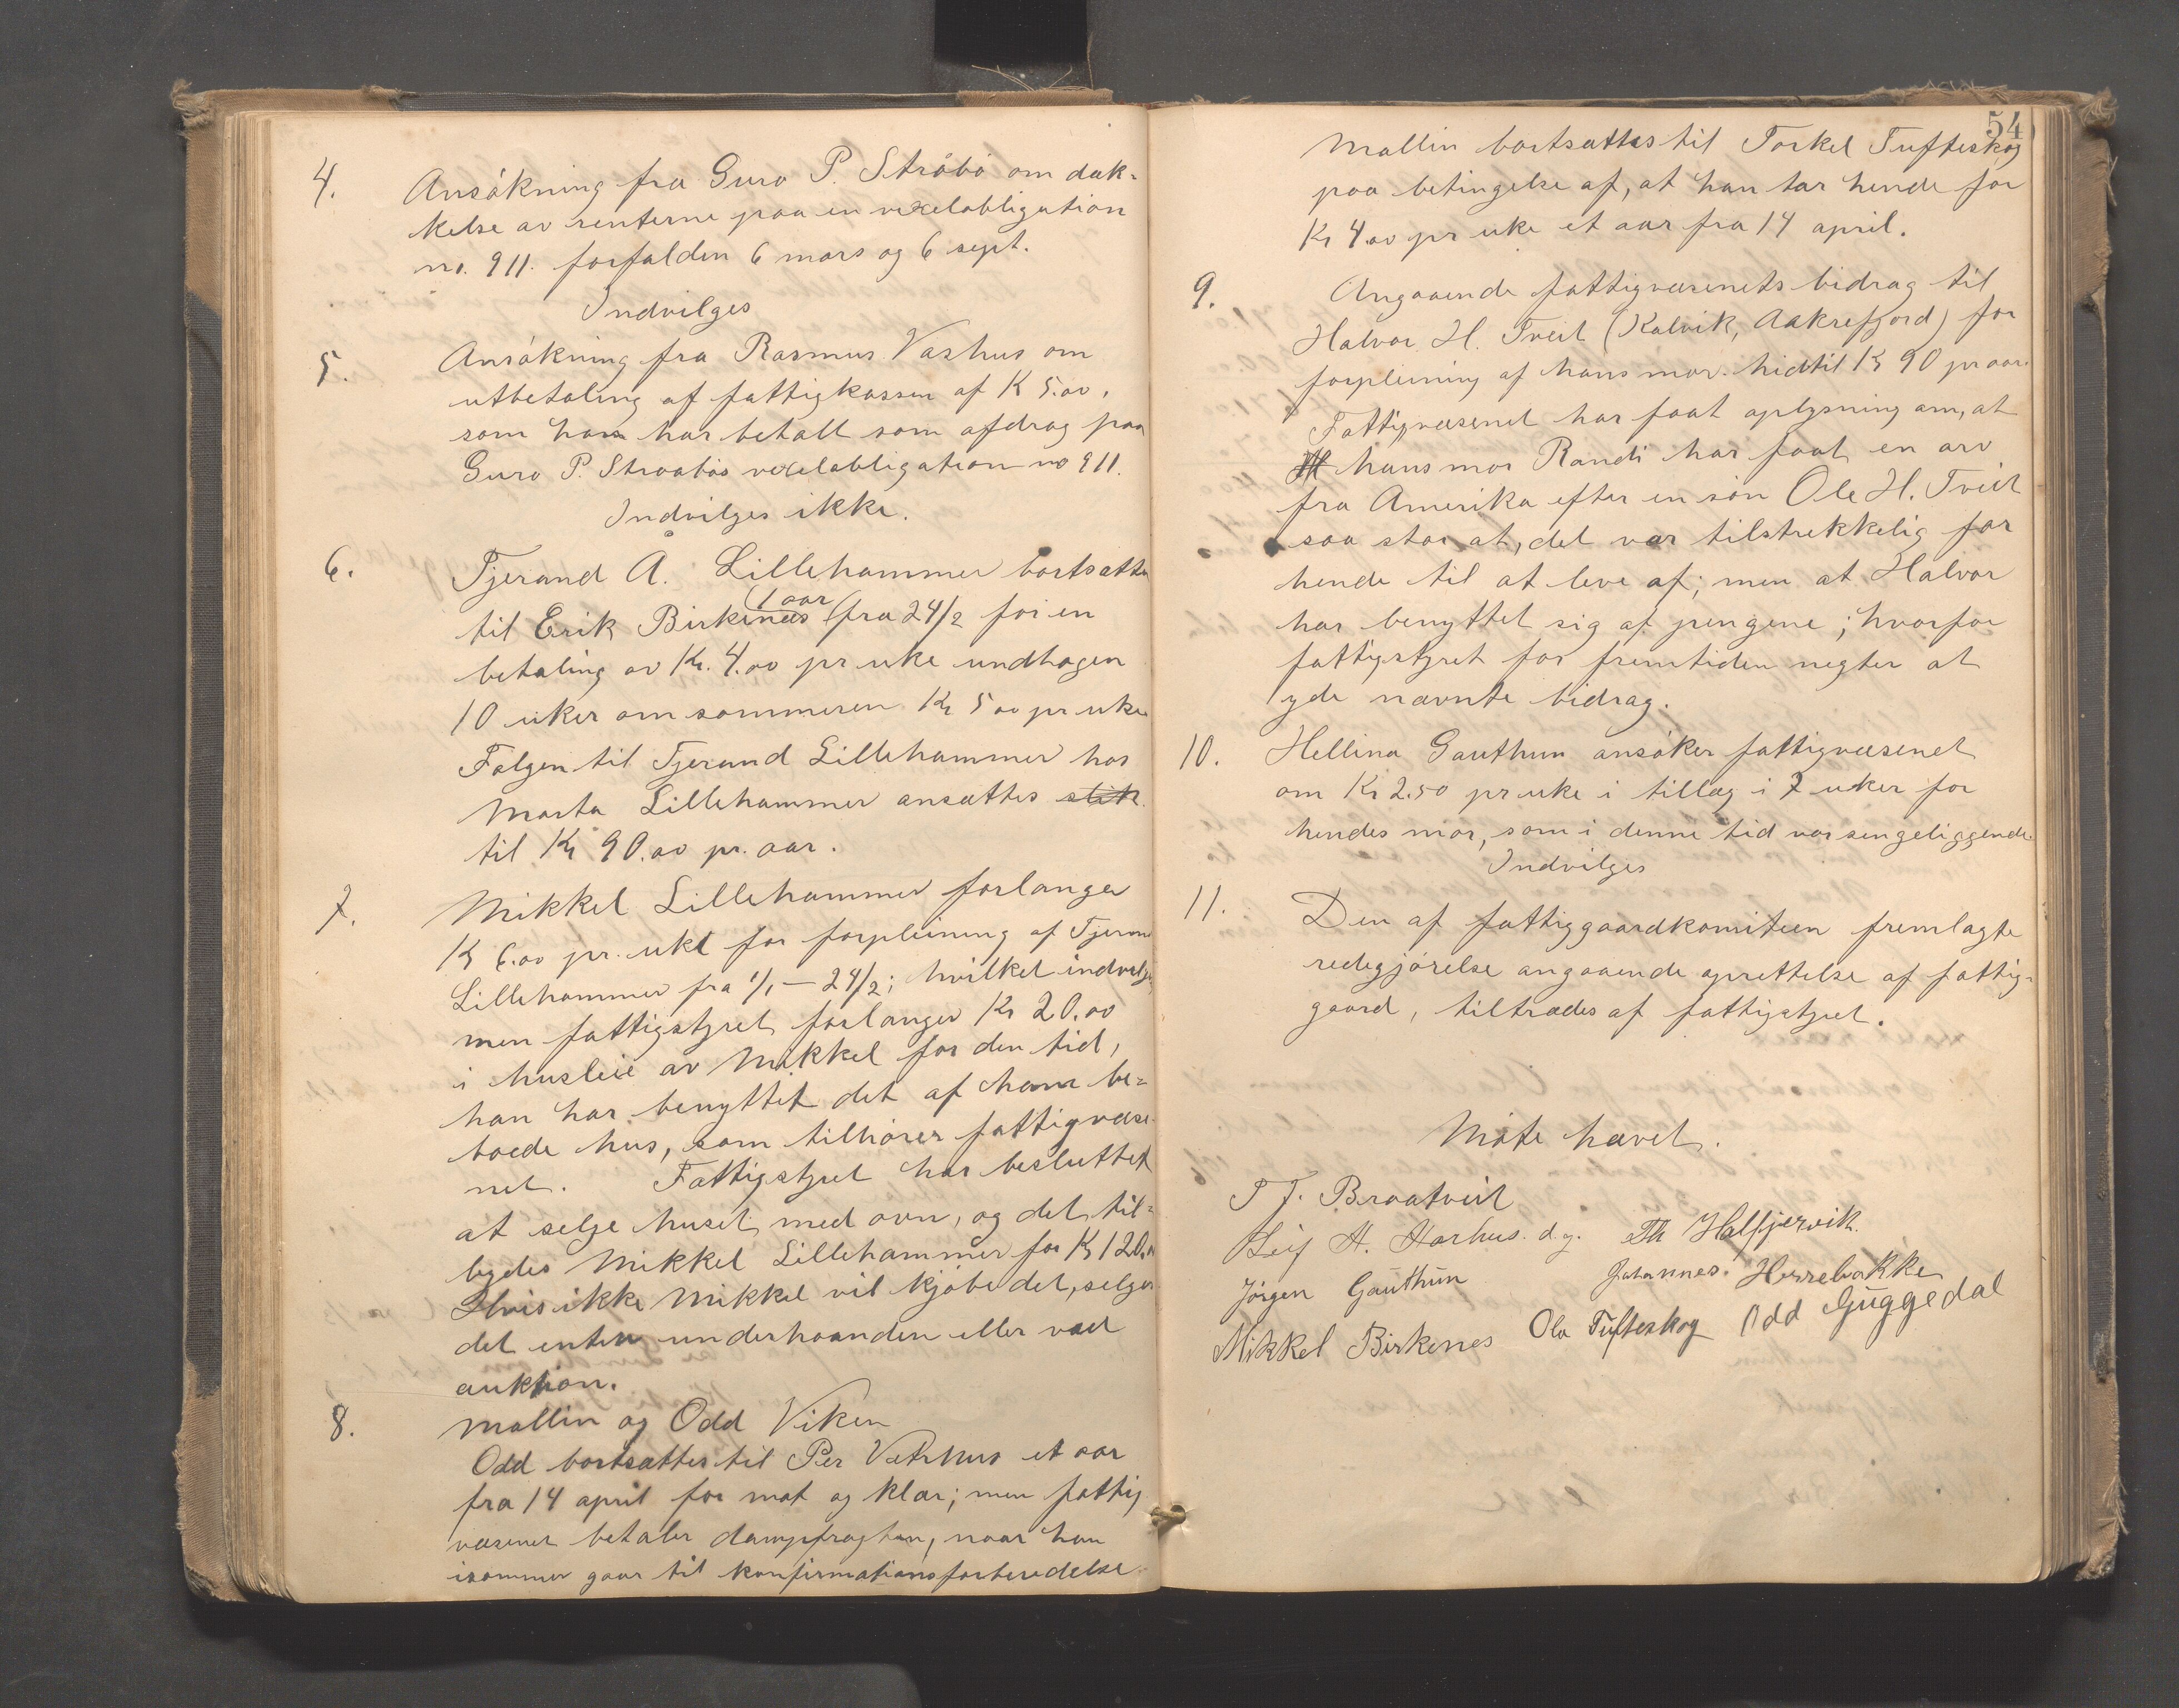 4. Ansökning fra Guro P. Ströbö om dæk-
kelse av renterne paa en vexelobligation
no. 911. forfalden 6 mars og 6 sept.
Indvilges
5. Ansökning fra Rasmus Vashus om
utbetaling af fattigkassen af K 5.00,
som han har betalt som afdrag paa
Guro P. Straabös vexelobligation no 911.
Indvilges ikke.
6. Tjerand A. Lillehammer bortsættes
til Erik Birkenæs (1 aar) fra 24/2 for en
betaling av Kr. 4.00 pr uke undtagen
10 uker om sommeren Kr 5 00 pr uke
Følgen til Tjerand Lillehammer hos
Marta Lillehammer ansættes
til Kr 90.00 pr. aar.
7. Mikkel Lillehammer forlanger
Kr 6.00 pr. uke for forpleining af Tjerand
Lillehammer fra 1/1 — 24/2; hvilket indvilges
men fattigstyret forlanger Kr 20.00
i husleie av Mikkel for den tid,
han har benyttet det af ham be-
boede hus, som tilhörer fattigvæse-
net. Fattigstyret har besluttet
at selge huset med ovn, og det til-
bydes Mikkel Lillehammer for Kr 120.00
Hvis ikke Mikkel vil kjöbe det, selges
det enten underhaanden eller ved
auktion.
8. Mallin og Odd Viken
Odd bortsættes til Per Vatshus et aar
fra 14 april for mat og klær; men fattig
væsenet betaler dampfragten, naar han
isommer gaar til konfirmationsforberedelse
54
Mallin bortsættes til Torkel Tufteskog
paa betingelse af, at han tar hende for
Kr 4.00 pr uke et aar fra 14 april.
9. Angaaende fattigvæsenets bidrag til
Halvor H. Tveit (Kalvik, Aakrefjord) for
forpleining af hans mor. hidtil Kr 90 pr aar.
Fattigvæsenet har faat oplysning om, at
hans mor Randi har faat en arv
fra Amerika efter en sön Ole H. Tveit
saa stor at, det var tilstrekkelig for
hende til at leve af; men at Halvor
har benyttet sig af pengene; hvorfor
fattigstyret for fremtiden negter at
yde nævnte bidrag.
10. Hellina Gauthun ansöker fattigvæsenet
om Kr 2.50 pr uke i tillæg i 7 uker for
hendes mor, som i denne tid var sengeliggende.
Indvilges
11. Den af fattiggaardkomiteen fremlagte
redegjörelse angaaende oprettelse af fattig-
gaard, tiltrædes af fattigstyret.
Möte hævet.
T T. Braatveit
Leif H. Aarhus. d.y. Th Halfjervik.
Jörgen Gauthun Johannes. Herrebakke
Mikkel Birkenes Ola Tufteskog Odd Guggedal